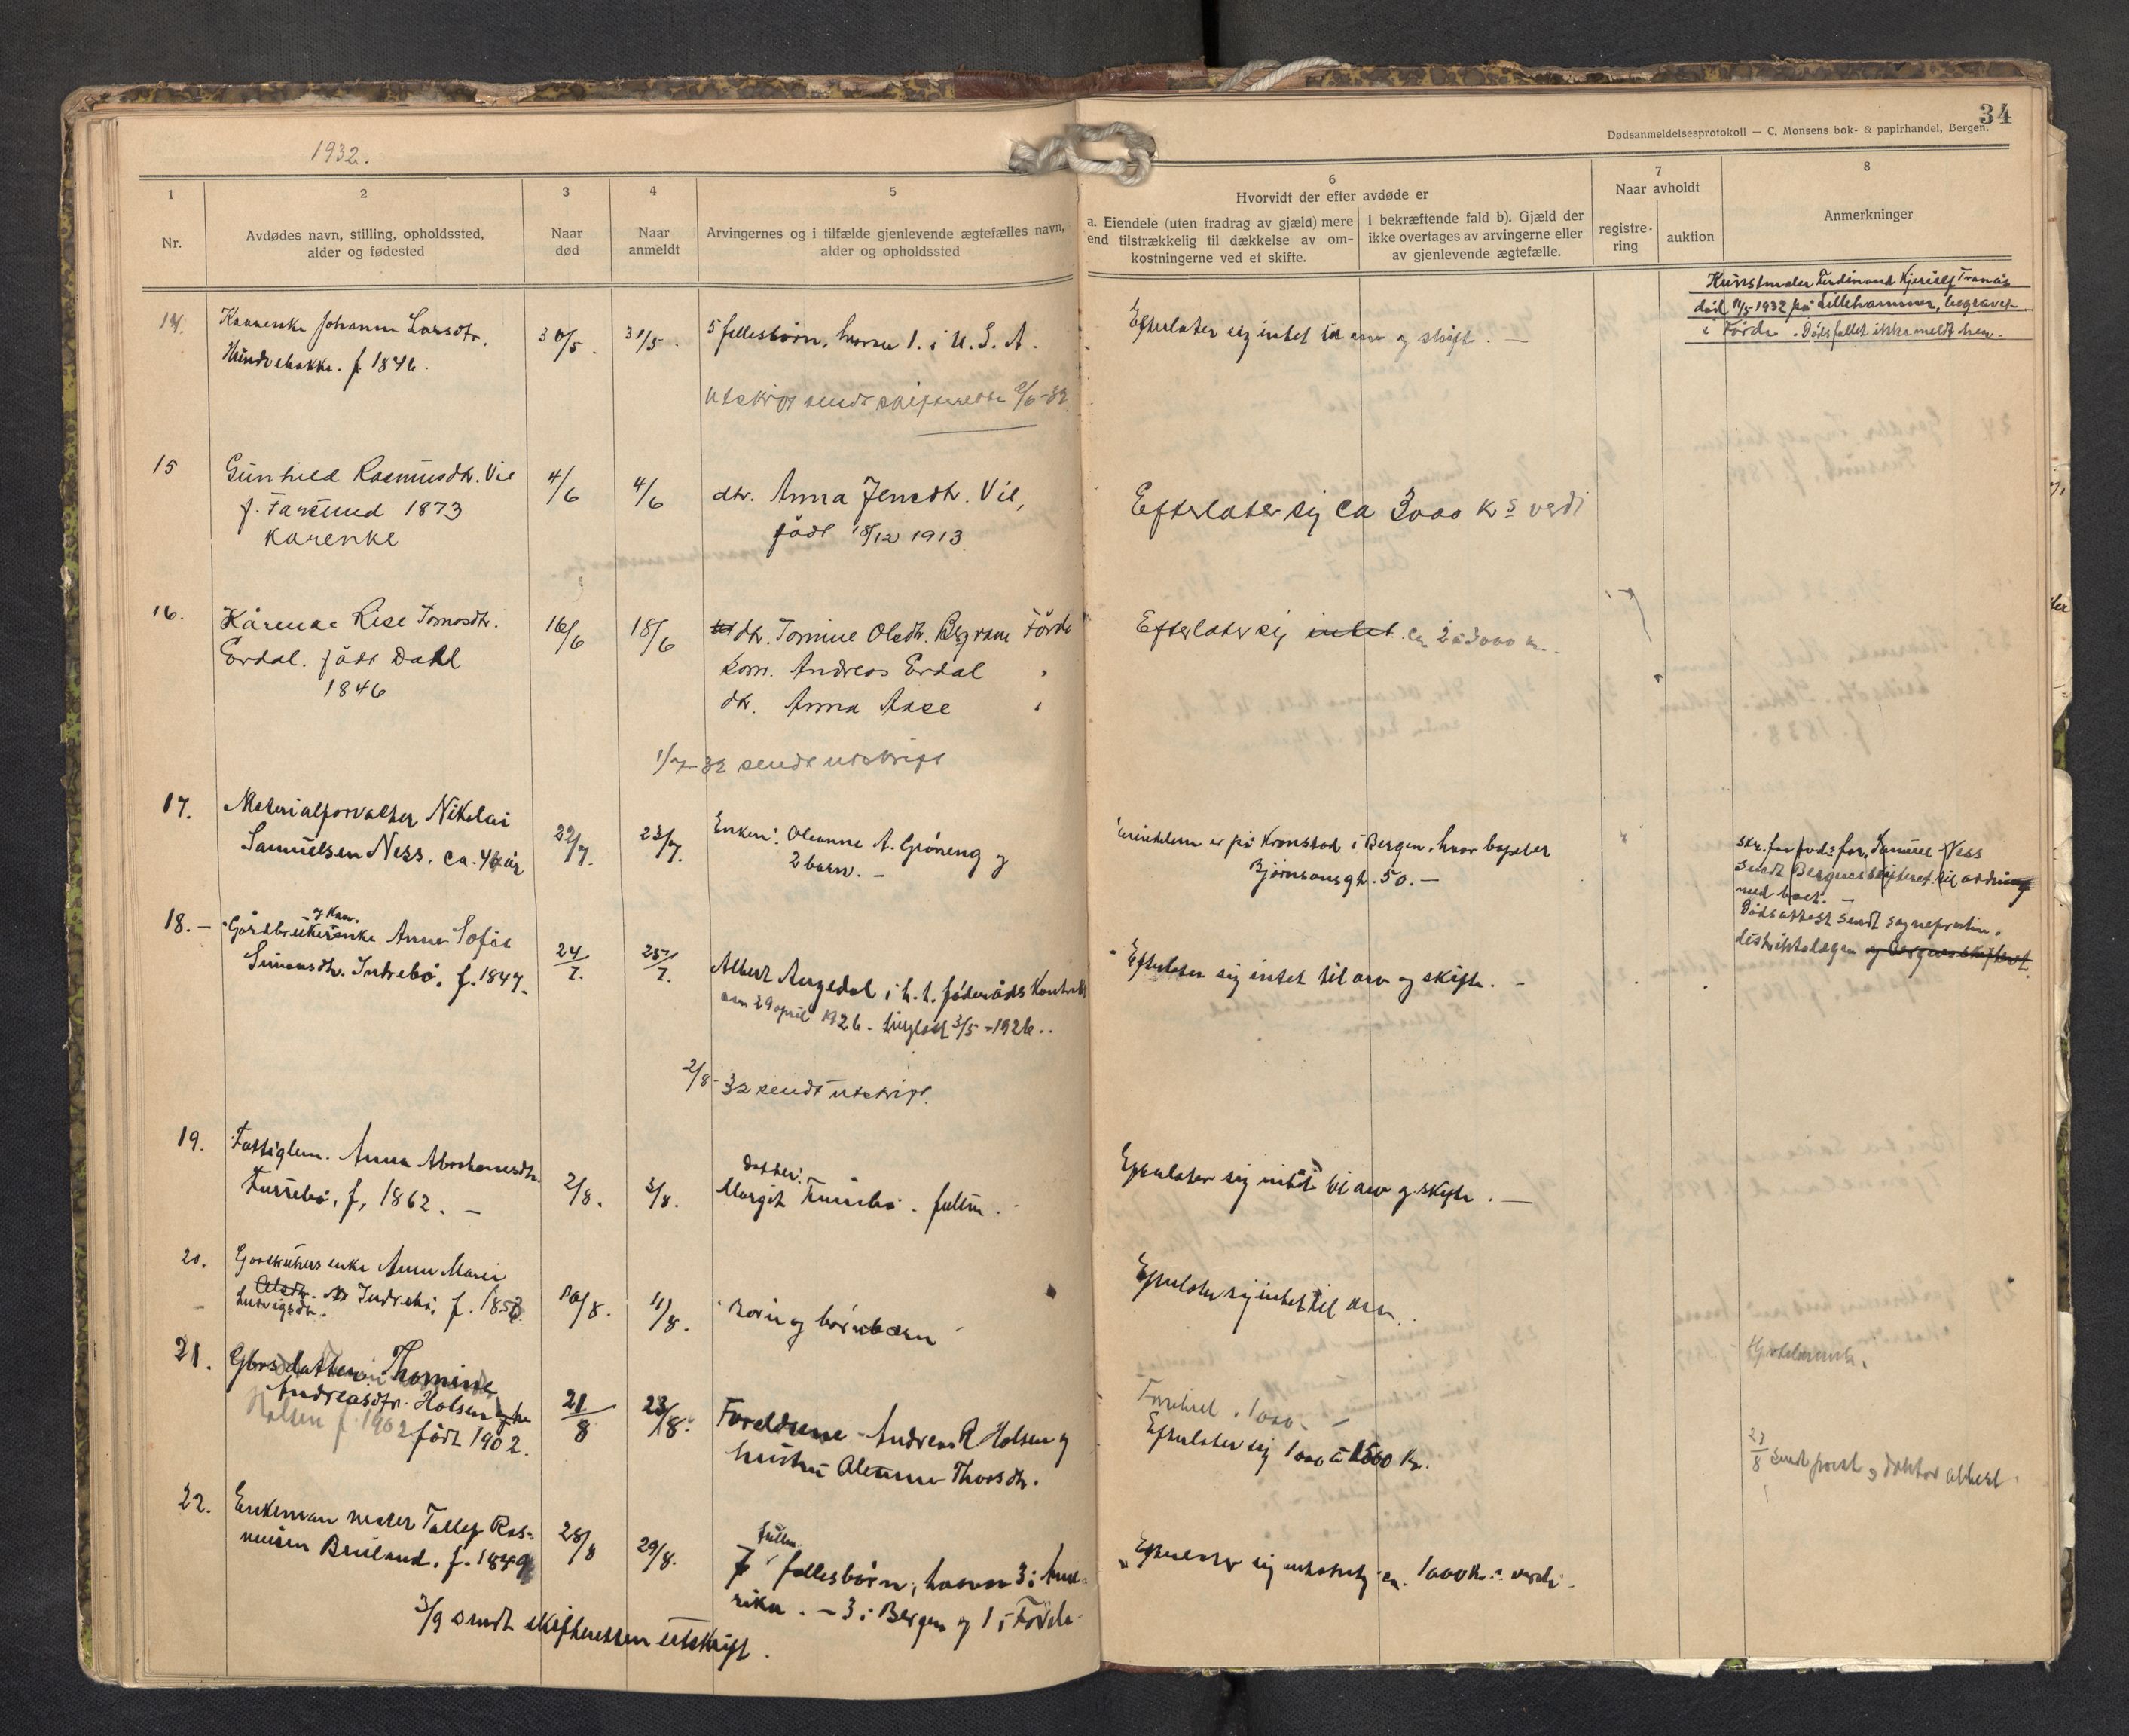 1932.
34
Dødsanmeldelsesprotokoll — C. Monsens bok- & papirhandel, Bergen.
1
Nr.
2
Avdødes navn, stilling, opholdssted,
alder og fødested
3
Naar
død
4
Naar
anmeldt
5
Arvingernes og i tilfælde gjenlevende ægtefælles navn,
alder og opholdssted
6
Hvorvidt der efter avdøde er
a. Eiendele (uten fradrag av gjæld) mere
end tilstrækkelig til dækkelse av om-
kostningerne ved et skifte.
I bekræftende fald b). Gjæld der
ikke overtages av arvingerne eller
av gjenlevende ægtefælle.
7
Naar avholdt
registre-
ring
auktion
8
Anmerkninger
Kunstmaler Ferdinand Tranås
død 11/5-1932 på Lillehammer, begravet
i Førde. Dødsfallet ikke meldt her.
14. Kaarenke Johanne Larsdtr.
f. 1846.
30/5. 31/5.
5 fellesbörn, hvorav 1. i U.S.A.
Efterlater sig intet til arv og skift. —
Utskrift sendt skifteretten 2/6-32
15 Gunhild Rasmusdtr. Vie
f. Farsund 1873
Kårenke
4/6 4/6
dtr. Anna Jensdtr. Vie,
född 18/12 1913
Efterlater sig ca 3000 krs verdi
16. Kårenke Lise Tomasdtr.
Erdal. född Dahl
1846
16/6 18/6
dtr. Tomine Olsdtr. Bergrane Förde
søn. Andreas Erdal "
dtr. Anna Aase "
Efterlater sig intet ca 2 à 3000 kr.
1/7-32 sendt utskrift
17. Materialforvalter Nikolai
Samuelsen Ness. ca. 44 år
22/7. 23/7.
Enken: Oleanne A. Gröneng og
2 barn. —
er på Kronstad i Bergen, hvor bopel er
Bjørnsonsgt. 50. —
skr. fra for. Samuel Ness
sendt Bergens skifteret til ordning
med boet. —
Dödsattest sendt sogneprestin.
distriktslægen og Bergens skifteret.
18. — Gårdbrukerenke og Kaar. Anne Sofie
Simonsdtr. Indrebö, f. 1847.
24/7. 25/7.
Albert Angedal i h. t. föderåds kontrakt
av 29 april 1926 - tinglest 3/5-1926..
Efterlater sig intet til arv og skifte. —
2/8-32 sendt utskrift.
19. Fattiglem. Anna Abrahamsdtr.
Farsebö, f. 1862. —
2/8. 3/8.
datter:
Margit Farsebö. fullm.
Efterlater sig intet til arv og skifte. —
20. Gardbrukers enke Anne Marie
Olsdtr. Indrebö, f. 1853
Ludvigsdtr.
10/8. 11/8.
Born og börnebarn
Efterlater sig intet til arv.
21. Gbrs datter Thomine
Andreasdtr. Holsen
Holsen f. 1902 född 1902.
21/8 23/8.
Foreldrene Andreas R Holsen og
hustru Oleanne Thorsdtr.
1000. —
Efterlater sig 1000 à 1500 Kr.
23/8 sendt prest og doktor attest
22. Enkemann Tollef Ras-
musen Bruland. f. 1849
28/8 29/8.
fullm.
7 fellesbörn, hvorav 3 i Ame-
rika. — 3 i Bergen og 1 i Förde.
Efterlater sig ca. 1000 kr. verdi.
3/9 sendt skifteretten utskrift.